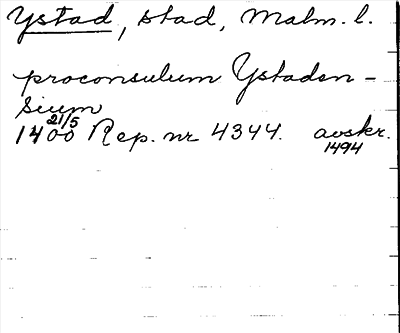 Ystad, stad, Malm. l.
proconsulum Ystaden-
sium
1400 21/5 Rep. nr 4344. avskr. 1494